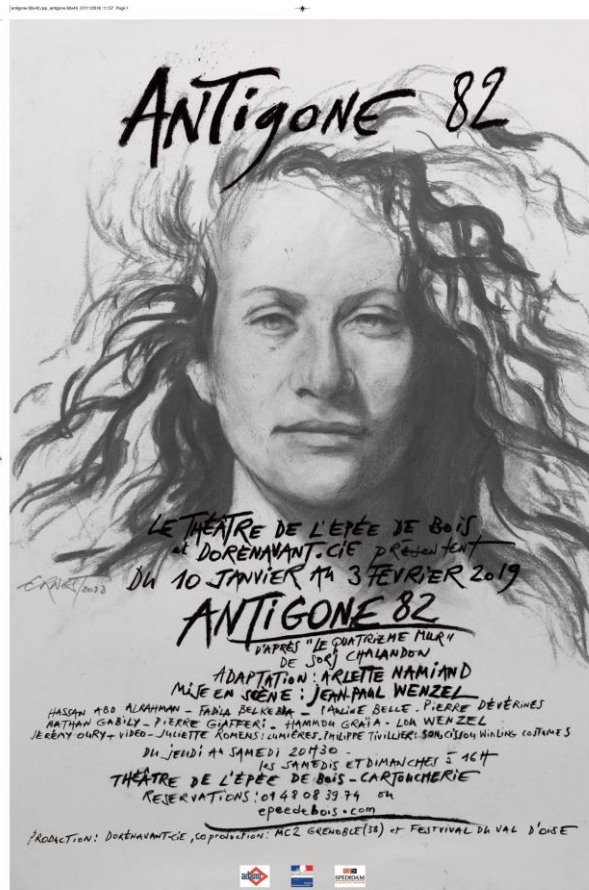 ANTIGONE 82
LE THÉÂTRE DE L'EPÉE DE BOIS
et DORENAVANT.CIE présentent
DU 10 JANVIER AU 3 FEVRIER 2019
ERNEST 2018
ANTIGONE 82
D'APRÈS "LE QUATRIÈME MUR"
DE SORJ CHALANDON
ADAPTATION : ARLETTE NAMIAND
MISE EN SCÈNE : JEAN-PAUL WENZEL
HASSAN ABD ALRAHMAN - FADILA BELKEBLA - PAULINE BELLE - PIERRE DEVÉRINES
NATHAN GABILY - PIERRE GIAFFERI - HAMMOU GRAÏA - LOU WENZEL
JÉRÉMY OURY + VIDEO - JULIETTE ROMENS : LUMIÈRES. PHILIPPE TIVILLIER : SON. CISSOU WINLING COSTUMES
DU JEUDI AU SAMEDI 20H30 -
les SAMEDIS ET DIMANCHES à 16H
THÉÂTRE DE L'EPÉE DE BOIS - CARTOUCHERIE
RESERVATIONS : 01 48 08 39 74 ou
epeedebois.com
PRODUCTION : DORÉNAVANT-CIE, coproduction : MC2 GRENOBLE (38) et FESTVIVAL DU VAL D'OISE
adami
SPEDIDAM